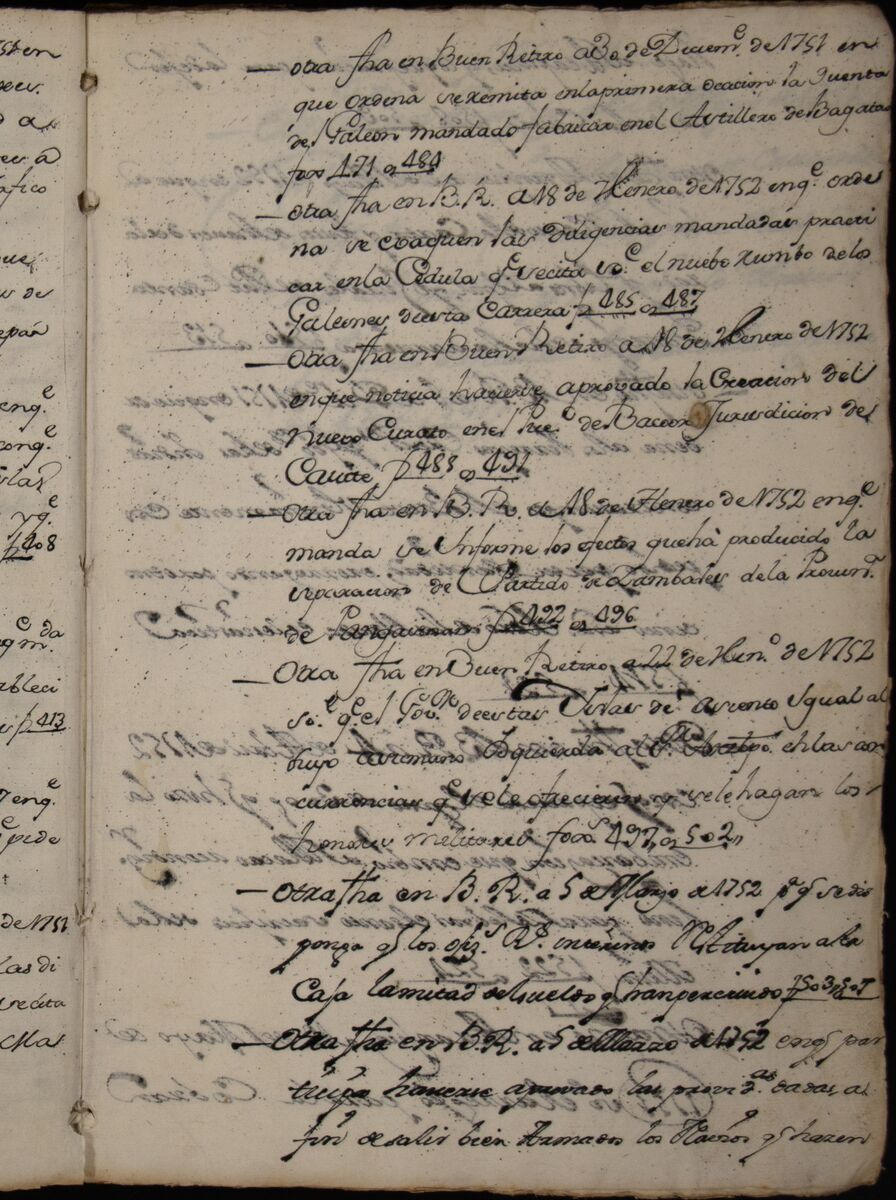 51 en
a
d a
afico
que
s de
epar
enq.e
conq.e
yq.e
f 408
ableci
f 413
enq.e
pide
de 1751
las di
se cita
Ma
— otra fha en Buen Retiro a 30 de Diciem.e de 1751 en
que ordena se remita en la primera ocacion la Quenta
del Galeon mandado fabricar en el Astillero de Bagatao
foxs 471 a 484
— otra fha en B. R. a 18 de Henero de 1752 enq.e orde
na se evaquen las diligencias mandadas practi
car en la Cedula q.e se cita so.e el nuebo rumbo de los
Galeones de esta Carrera f 485 a 487
— Otra fha en Buen Retiro a 18 de Henero de 1752
en que noticia haverse aprovado la Creacion del
nuevo Curato en el Pue.o de Bacoor Jurisdicion de
Cavite f 488 a 491
— Otra fha en B. R. a 18 de Henero de 1752 enq.e
manda se Informe los efectos que hà producido la
separacion del Partido de Zambales de la Provin.a
de Pangasinan f 492 a 496
— Otra fha en Buen Retiro a 22 de Hen.o de 1752
so.e q.e el Gov.or de estas Yslas de asiento Ygual al
suyo a su mano Izquierda al S.r Arzbpo. en las con
currencias q.e se le ofrecieren y se le hagan los
honores militares foxs 497 a 502
— Otra fha en B. R. a 5 de Marzo de 1752 p.a q se dis
ponga q los ofiz.s R.s interinos Restituyan a la
Caja la mitad del sueldo q han percivido f 503 a 507
— Otra fha en B. R. a 5 de Marzo de 1752 enq par
ticipa haverse aprovado las provid.as dadas, a
fin de salir bien Armados los Navios q hazen